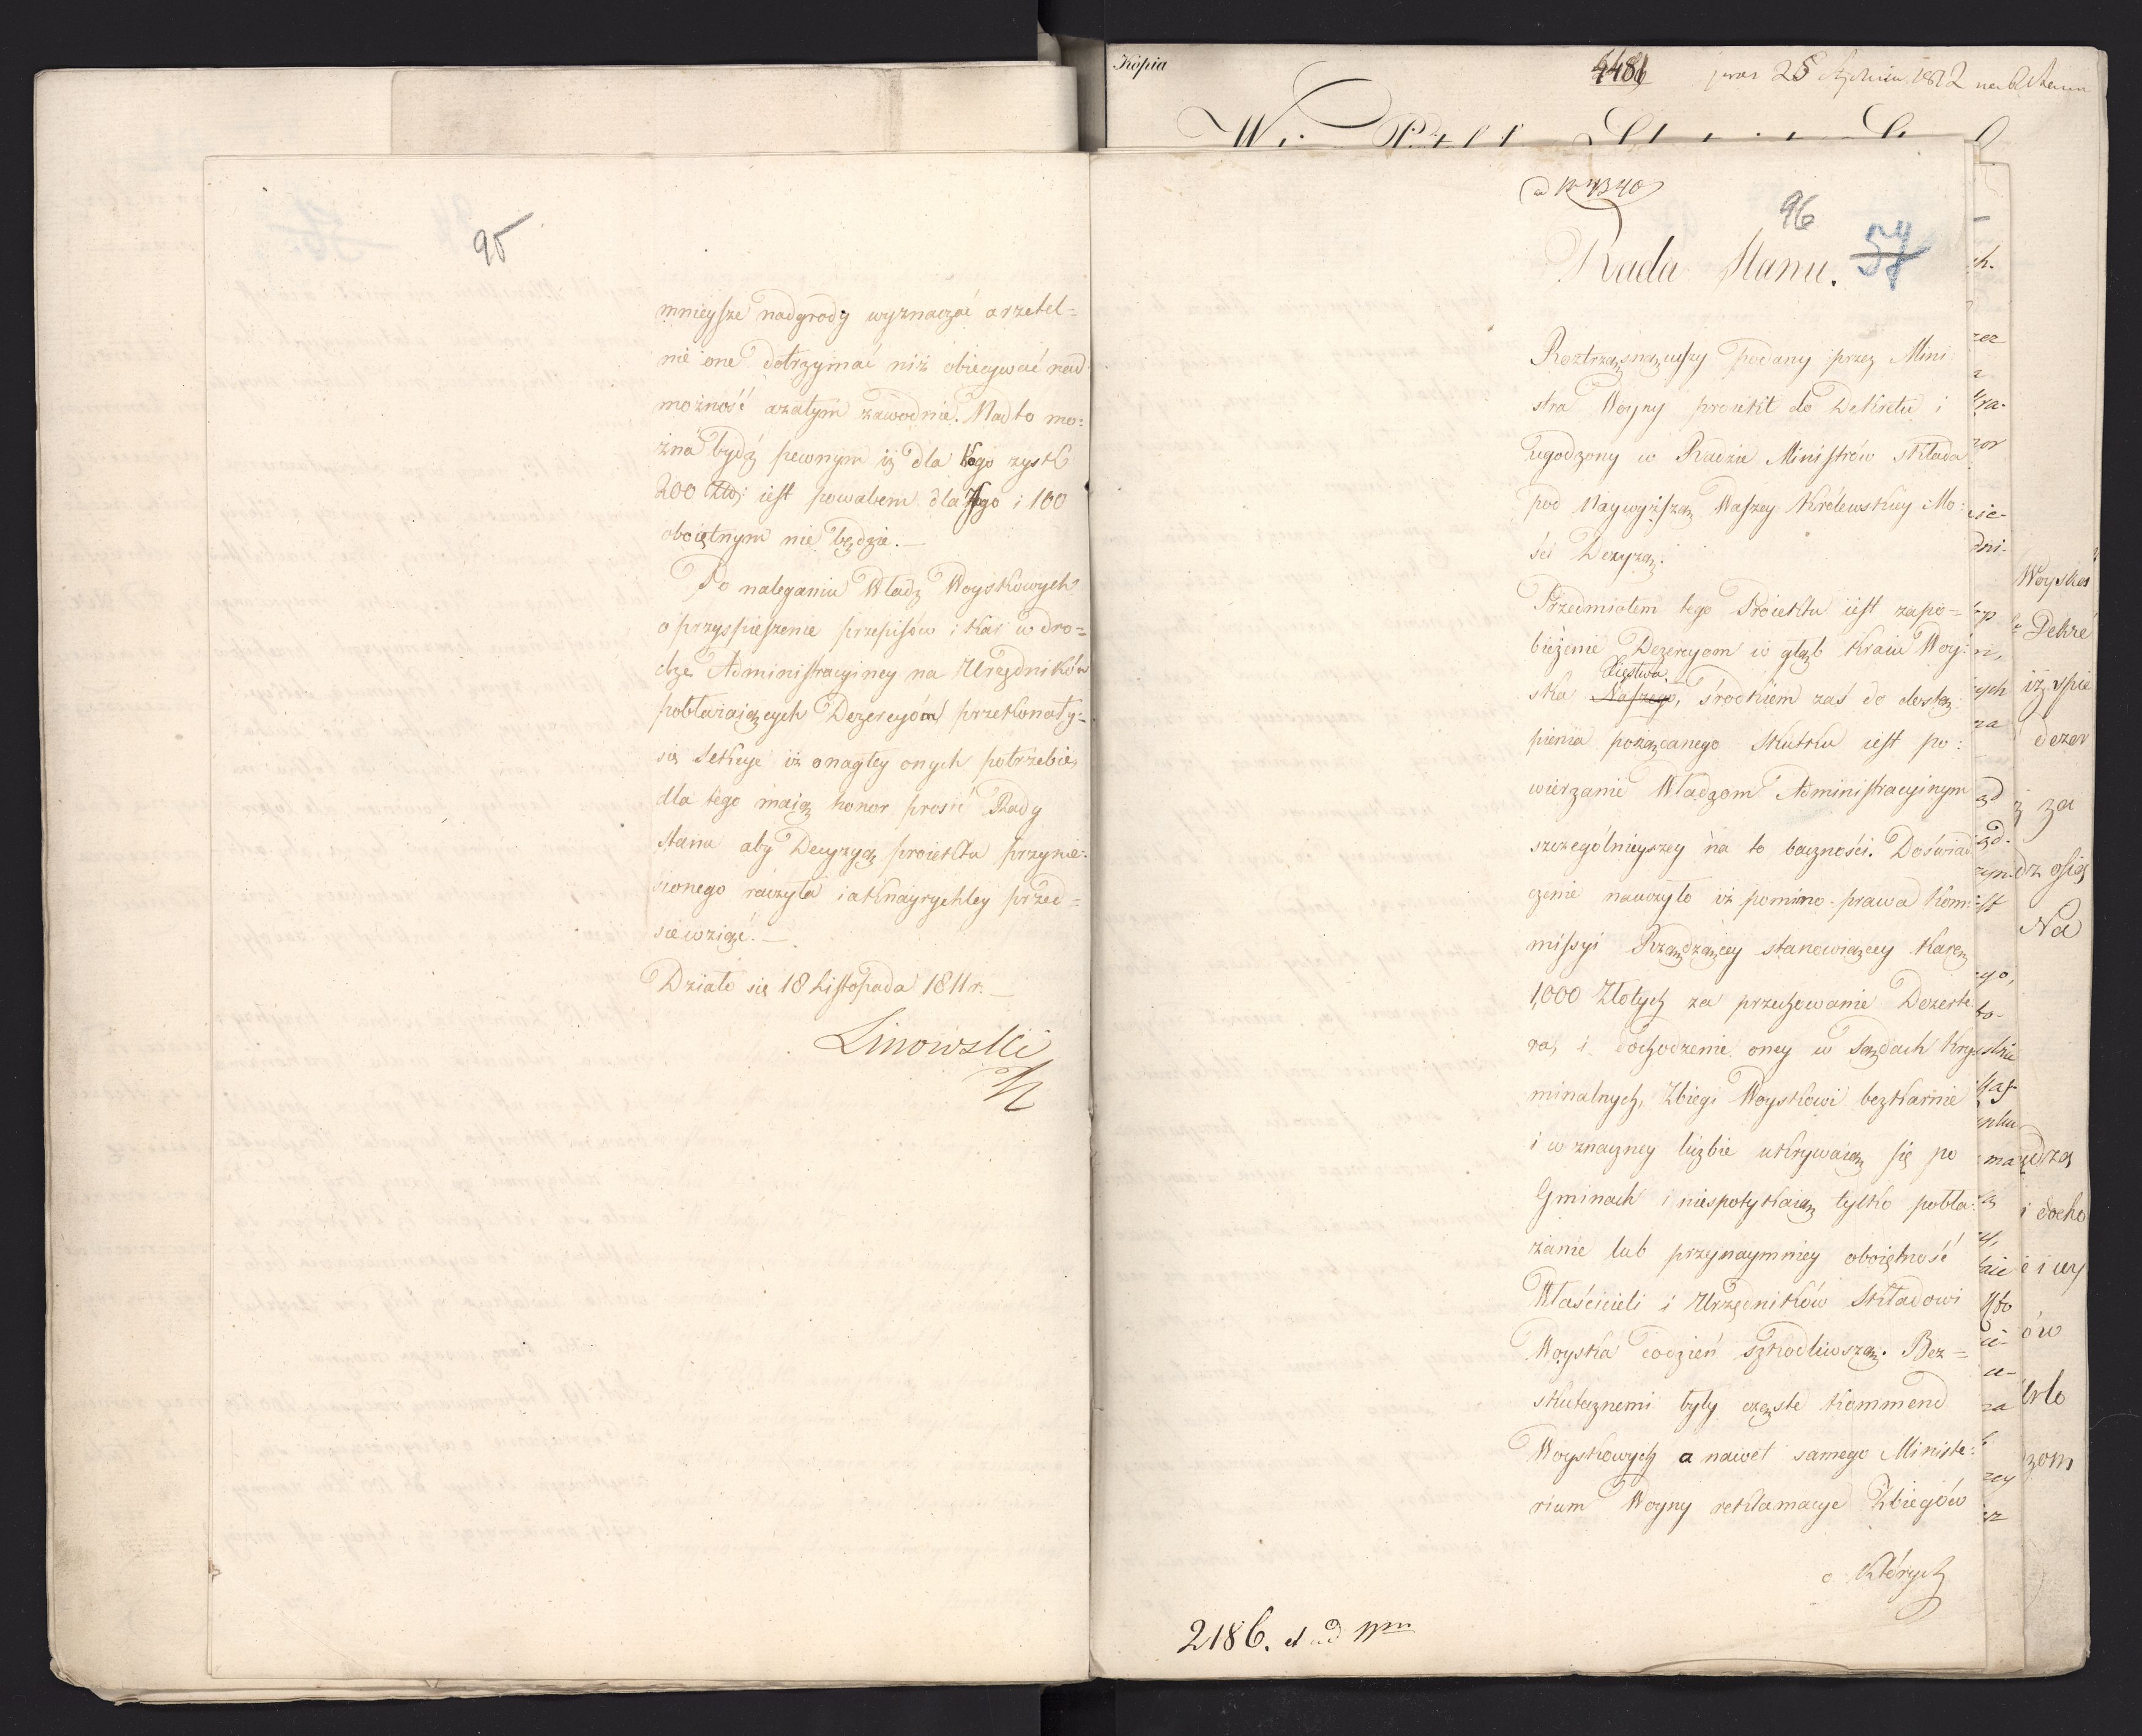 95
mnieysze nadgrody wyznaczać a rzetel=
nie one dotrzymać niż obiecywać nad
możność azatym zawodnie. Nadto mo:
żna bydź pewnym iż dla kogo zysk
200 Złł: iest powabem dla tego i 100
oboiętnym nie będzie. —
Po naleganiu Władz Woyskowych
o przyspieszenie przepisów i kar w dro=
dze Administracyiney na Urzędników
pobłażaiących Dezercyom przekonały=
się Sekcye iż o nagłey onych potrzebie,
dla tego maią honor prosić Rady
stanu aby Decyzyą proiektu przynie:
sionego raczyła iaknayrychley przed=
siewziąć. —
Działo się 18 Listopada 1811 r. —
Linowski
Kopia
4481
25 Stycznia 1812
ad Nr 4340
96
57
Rada Stanu.
Roztrząsnąwszy podany przez Mini
stra Woyny proiekt do Dekretu i
ugodzony w Radzie Ministrów składa
pod Naywyższą Waszey Królewskiey Mo:
ści Decyzyą.
Przedmiotem tego Proiektu iest zapo=
bieżenie Dezercyom w głąb Kraiu Woy:
Xięstwa
ska Naszego, środkiem zaś do dostą
pienia pożądanego skutku iest po:
wierzanie Władzom Administracyinym
szczególnieyszey na to baczności. Doświad
czenie nauczyło iż pomimo prawa Kom:
missyi Rządzącey stanowiącey karę
1,000 Złotych za przechowanie Dezerte
ra, i dochodzenie oney w Sądach Kry
minalnych, Zbiegi Woyskowi bezkarnie
i w znaczney liczbie ukrywaią się po
Gminach i niespotykaią tylko pobła:
żanie lub przynaymniey oboiętność
Właścicieli i Urzędników Składowi
Woyska codzień szkodliwszą. Bez=
skutecznemi były częste Kommend
Woyskowych a nawet samego Ministe:
rium Woyny reklamacye Zbiegów
o których
2186. et ad
Woysko
Dekre
iż spie
dezer
ż za
Na
i docho
zom